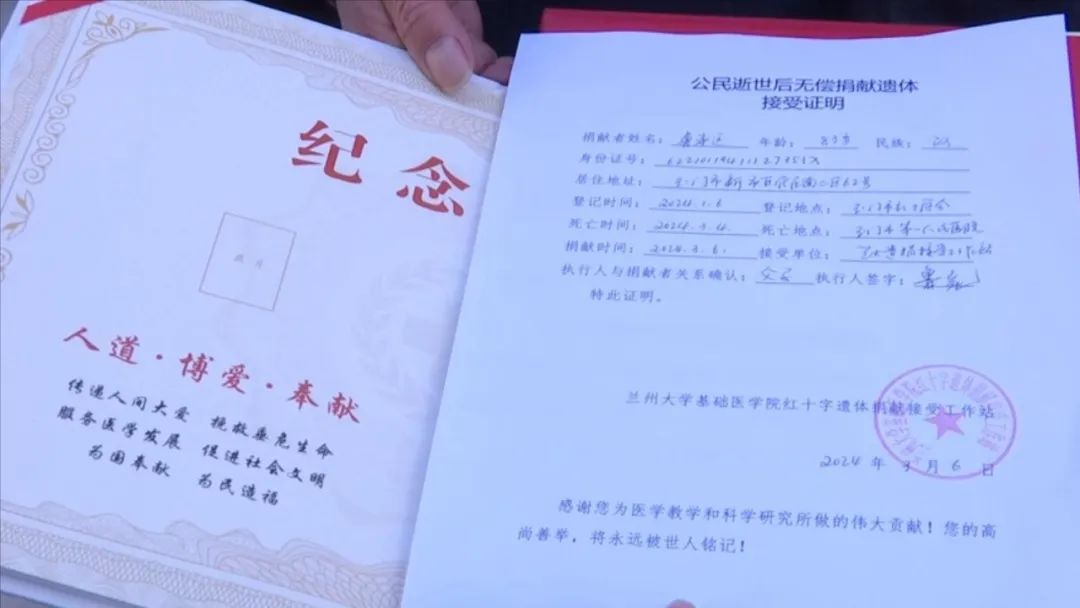 纪念
照片
人道·博爱·奉献
传递人间大爱 挽救垂危生命
服务医学发展 促进社会文明
为国奉献 为民造福
公民逝世后无偿捐献遗体
接受证明
捐献者姓名： 年龄：83岁 民族：汉
身份证号：
居住地址：玉门市新市区
登记时间：2024.1.6 登记地点：玉门市红十字会
死亡时间：2024.3.4. 死亡地点：玉门市第一人民医院
捐献时间：2024.3.6. 接受单位：
执行人与捐献者关系确认：父子 执行人签字：
特此证明。
兰州大学基础医学院红十字遗体捐献接受工作站
2024 年 3 月 6 日
感谢您为医学教学和科学研究所做的伟大贡献！您的高
尚善举，将永远被世人铭记！